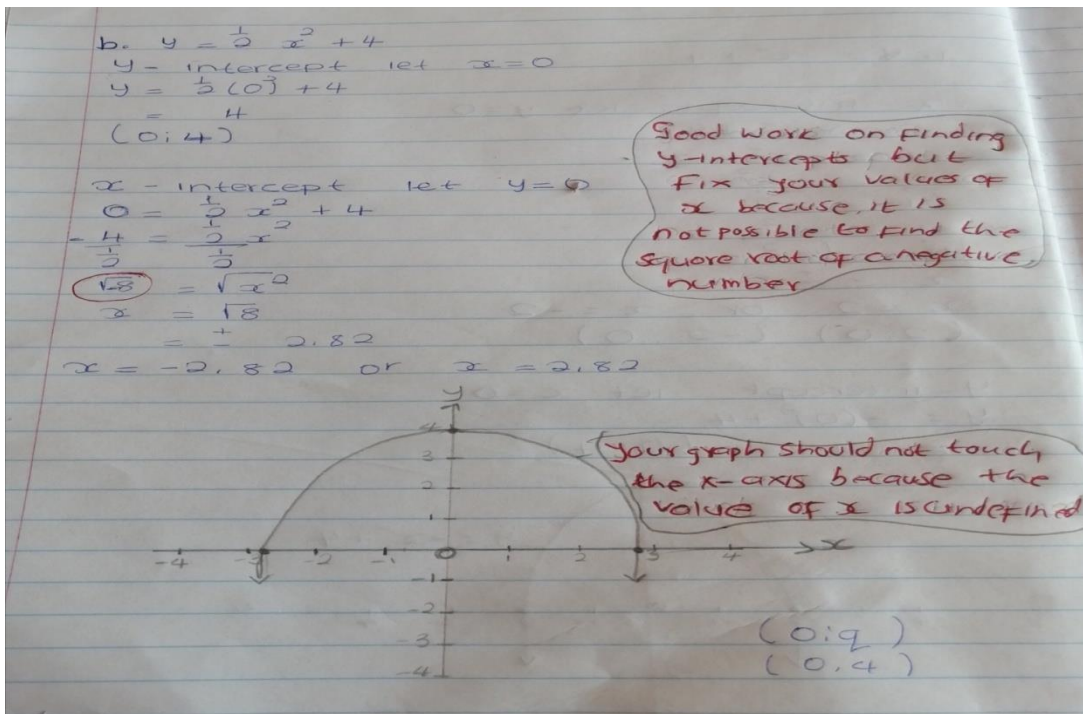 b. y = 1/2 x² + 4
y - intercept let x = 0
y = 1/2 (0)² + 4
= 4
(0; 4)
x - intercept let y = 0
0 = 1/2 x² + 4
- 4 = 1/2 x²
1/2 1/2
√-8 = √x²
x = √8
= ± 2.82
x = -2.82 or x = 2.82
Good work on finding
y-intercepts but
fix your values of
x because it is
not possible to find the
square root of a negative
number
your graph should not touch
the x-axis because the
value of x is undefined
y
4
3
2
1
-4 -3 -2 -1 0 1 2 3 4 x
-1
-2
-3
-4
(0;q)
(0.4)